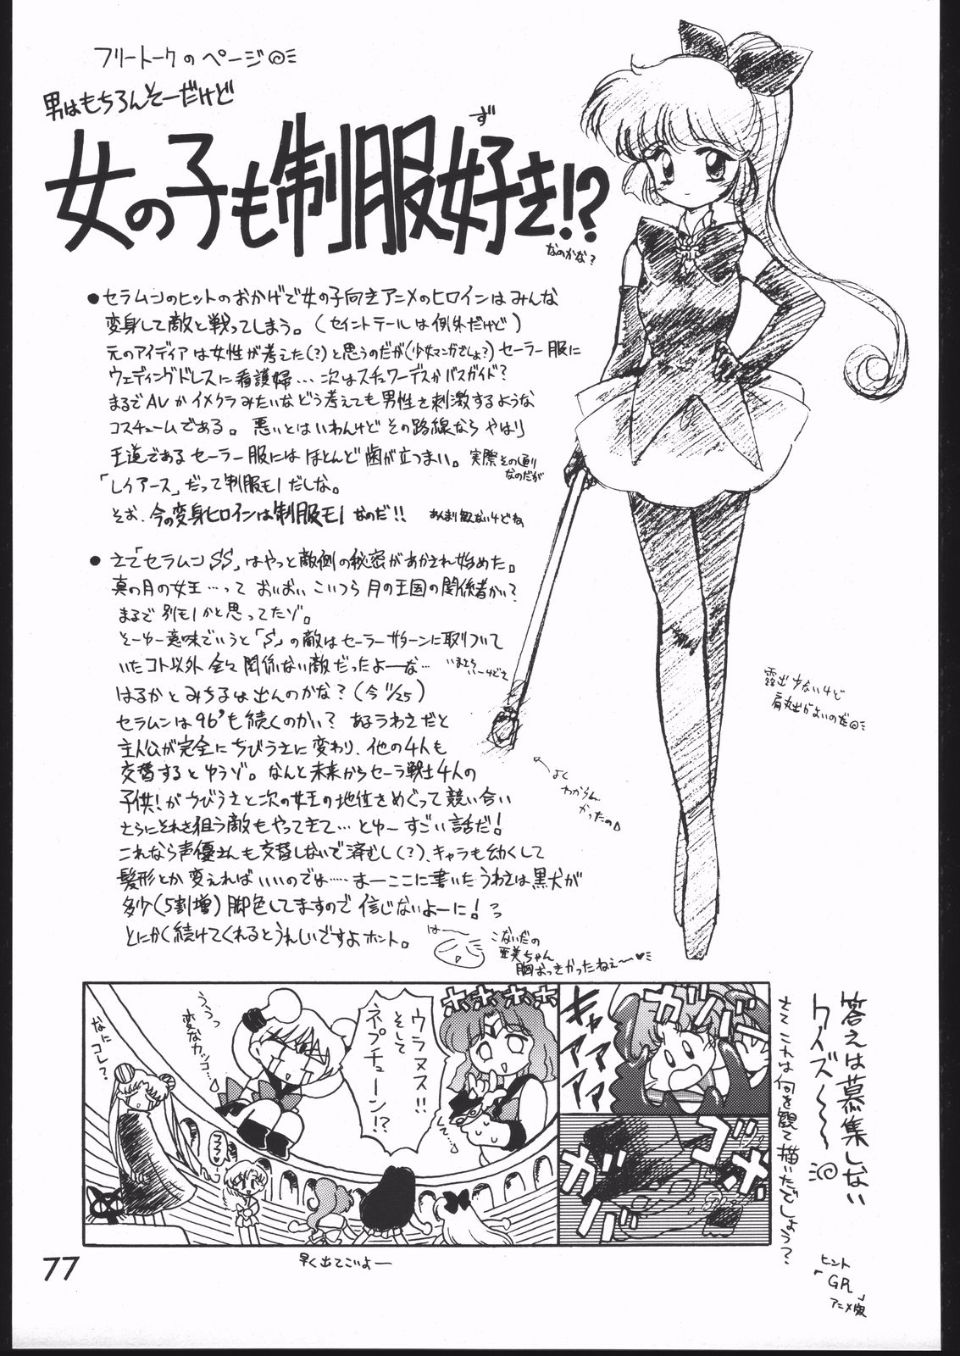 フリートークのページ
男はもちろんそーだけど
女の子も制服好き!?
ず
なのかな?
●セラムンのヒットのおかげで女の子向きアニメのヒロインはみんな
変身して敵と戦ってしまう。(セイントテールは例外だけど)
元のアイディアは女性が考えた(?)と思うのだが(少女マンガでしょ?)セーラー服に
ウェディングドレスに看護婦…次はスチュワーデスかバスガイド?
まるでAVかイメクラみたいなどう考えても男性を刺激するような
コスチュームである。悪いとはいわんけどその路線ならやはり
王道であるセーラー服にはほとんど歯が立つまい。実際その通り
なのだが
「レイアース」だって制服モノだしな。
そお、今の変身ヒロインは制服モノなのだ!! あんまり観ないけどね
●さて「セラムンSS」はやっと敵側の秘密があかされ始めた。
真の月の女王…って おいおい こいつら月の王国の関係者かい?
まるで別モノかと思ってたゾ。
そーゆー意味でいうと「S」の敵はセーラーサターンに取りついて
いたコト以外全く関係ない敵だったよーな…
はるかとみちるは出んのかな?(今11/25)
セラムンは96'も続くのかい? あるうわさだと
主人公が完全にちびうさに変わり、他の4人も
交替するとゆうゾ。なんと未来からセーラ戦士4人の
子供!がちびうさと次の女王の地位をめぐって競い合い
さらにそれを狙う敵もやってきて…とゆーすごい話だ!
これなら声優さんも交替しないで済むし(?)、キャラも幼くして
髪形とか変えればいいのでは……まーここに書いたうわさは黒犬が
多少(5割増)脚色してますので信じないよーに!
とにかく続けてくれるとうれしいですよホント。
はー
こないだの
亜美ちゃん
胸おっきかったねぇ〜♥
露出少ないけど
肩丸出がよいのだ
よく
わからん
かったの
なにコレ?
ううっ
変なカッコ…
ウラヌス!!
そして
ネプチューン!?
ホホホホ
そして…
フフフ♥
キャアアア
ガバッ
ガガガ
早く出てこいよー
答えは募集しない
クイズ〜〜
さてこれは何を観て描いたでしょう?
ヒント
「GR」
アニメ版
77